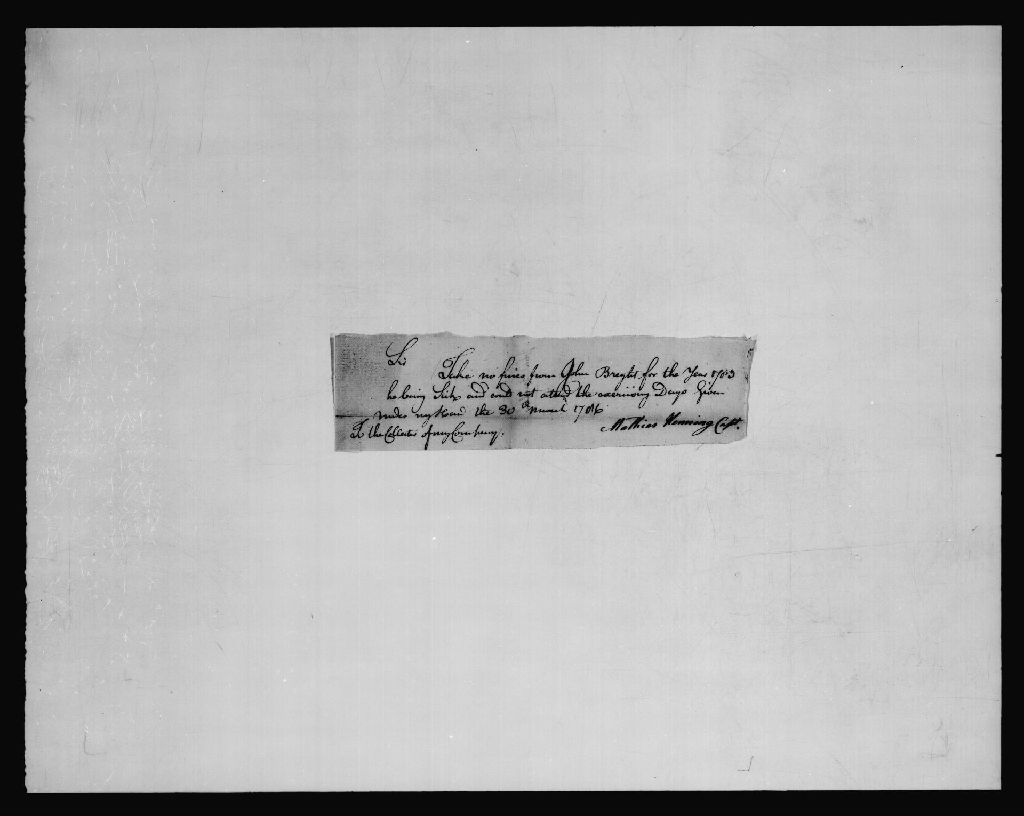 Sir
Take no fines from John Breght for the Year 1783
he being Sick and could not attend the exercising Days Given
under my Hand the 30th March 1786
Mathias Henning Capt.
To the Collector of my Company.